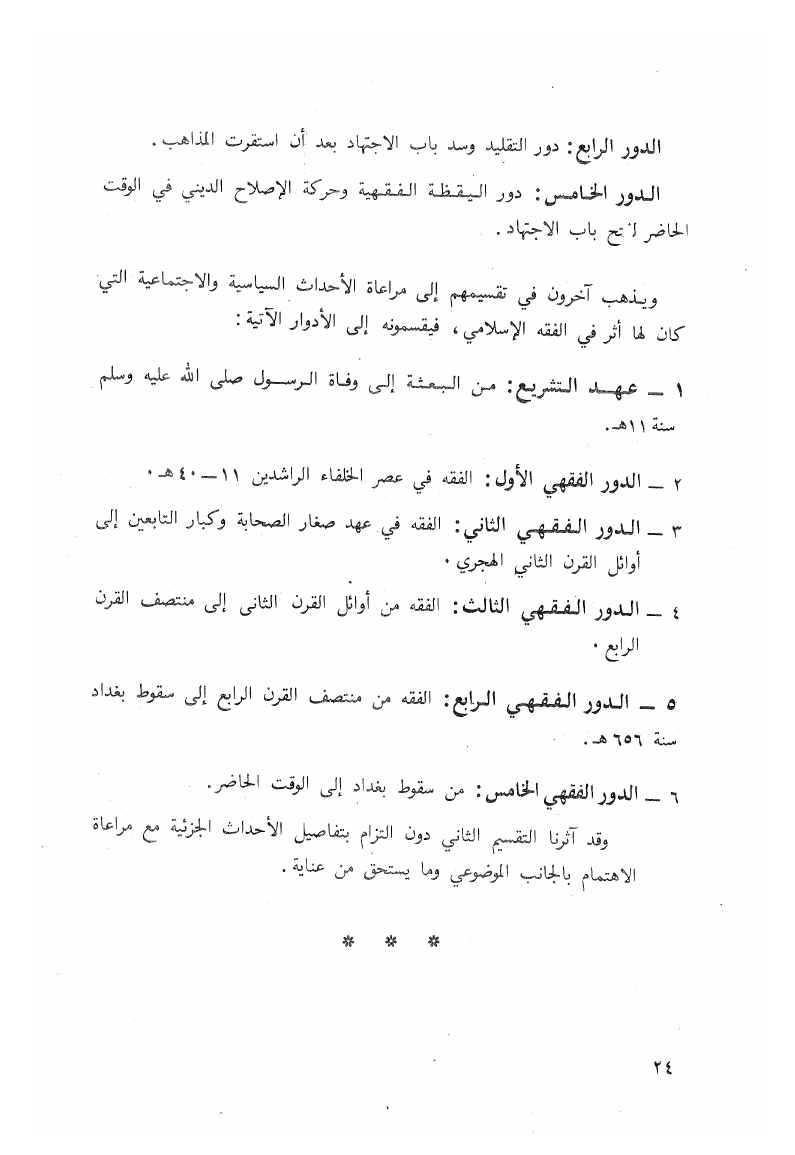 الدور الرابع: دور التقليد وسد باب الاجتهاد بعد أن استقرت المذاهب.
الدور الخامس: دور اليقظة الفقهية وحركة الإصلاح الديني في الوقت
الحاضر لفتح باب الاجتهاد.
ويذهب آخرون في تقسيمهم إلى مراعاة الأحداث السياسية والاجتماعية التي
كان لها أثر في الفقه الإسلامي، فيقسمونه إلى الأدوار الآتية:
١ ــ عهد التشريع: من البعثة إلى وفاة الرسول صلى الله عليه وسلم
سنة ١١هـ.
٢ ــ الدور الفقهي الأول: الفقه في عصر الخلفاء الراشدين ١١ــ٤٠هـ.
٣ ــ الدور الفقهي الثاني: الفقه في عهد صغار الصحابة وكبار التابعين إلى
أوائل القرن الثاني الهجري.
٤ ــ الدور الفقهي الثالث: الفقه من أوائل القرن الثانى إلى منتصف القرن
الرابع.
٥ ــ الدور الفقهي الرابع: الفقه من منتصف القرن الرابع إلى سقوط بغداد
سنة ٦٥٦هـ.
٦ ــ الدور الفقهي الخامس: من سقوط بغداد إلى الوقت الحاضر.
وقد آثرنا التقسيم الثاني دون التزام بتفاصيل الأحداث الجزئية مع مراعاة
الاهتمام بالجانب الموضوعي وما يستحق من عناية.
* * *
٢٤